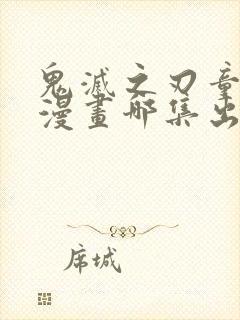 鬼滅之刃童
漫畫哪集出
席城